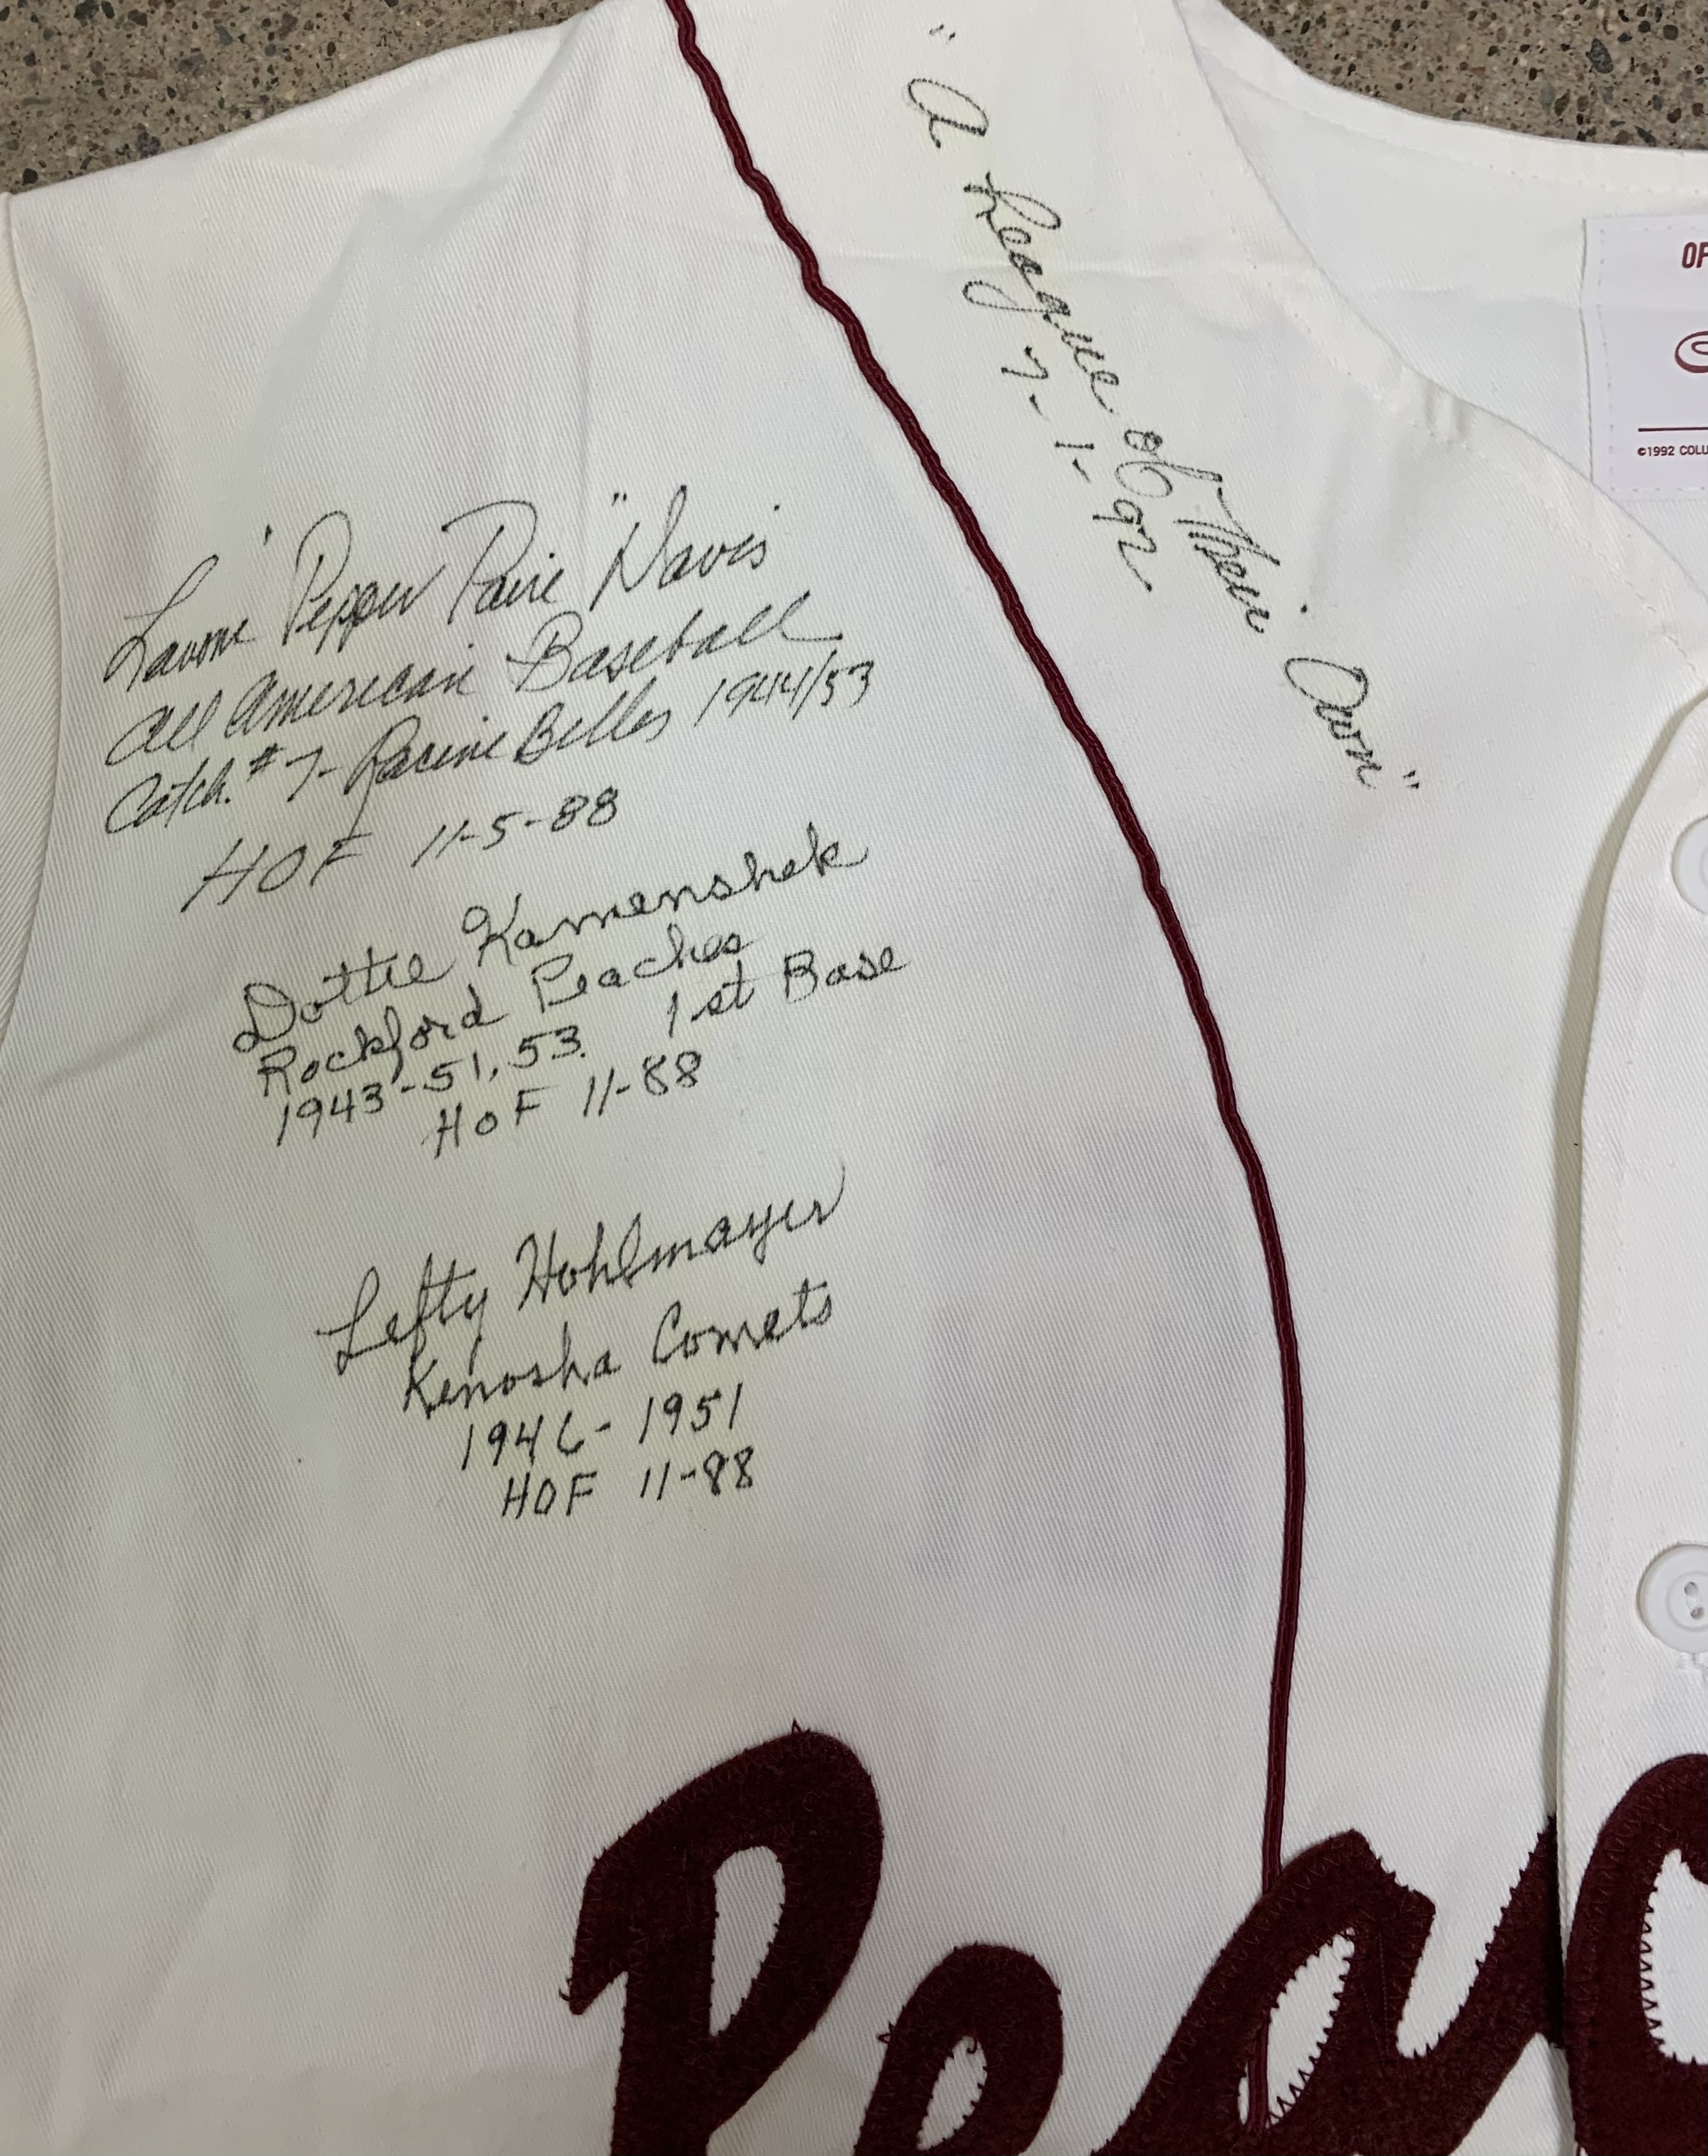 "A League of Their Own"
7-1-92
OF
©1992 COLU
Lavone "Pepper Paire" Davis
All American Baseball
Catch. #7- Racine Belles 1944/53
HOF 11-5-88
Dottie Kamenshek
Rockford Peaches
1943-51, 53. 1st Base
HOF 11-88
Lefty Hohlmayer
Kenosha Comets
1946-1951
HOF 11-88
Peac